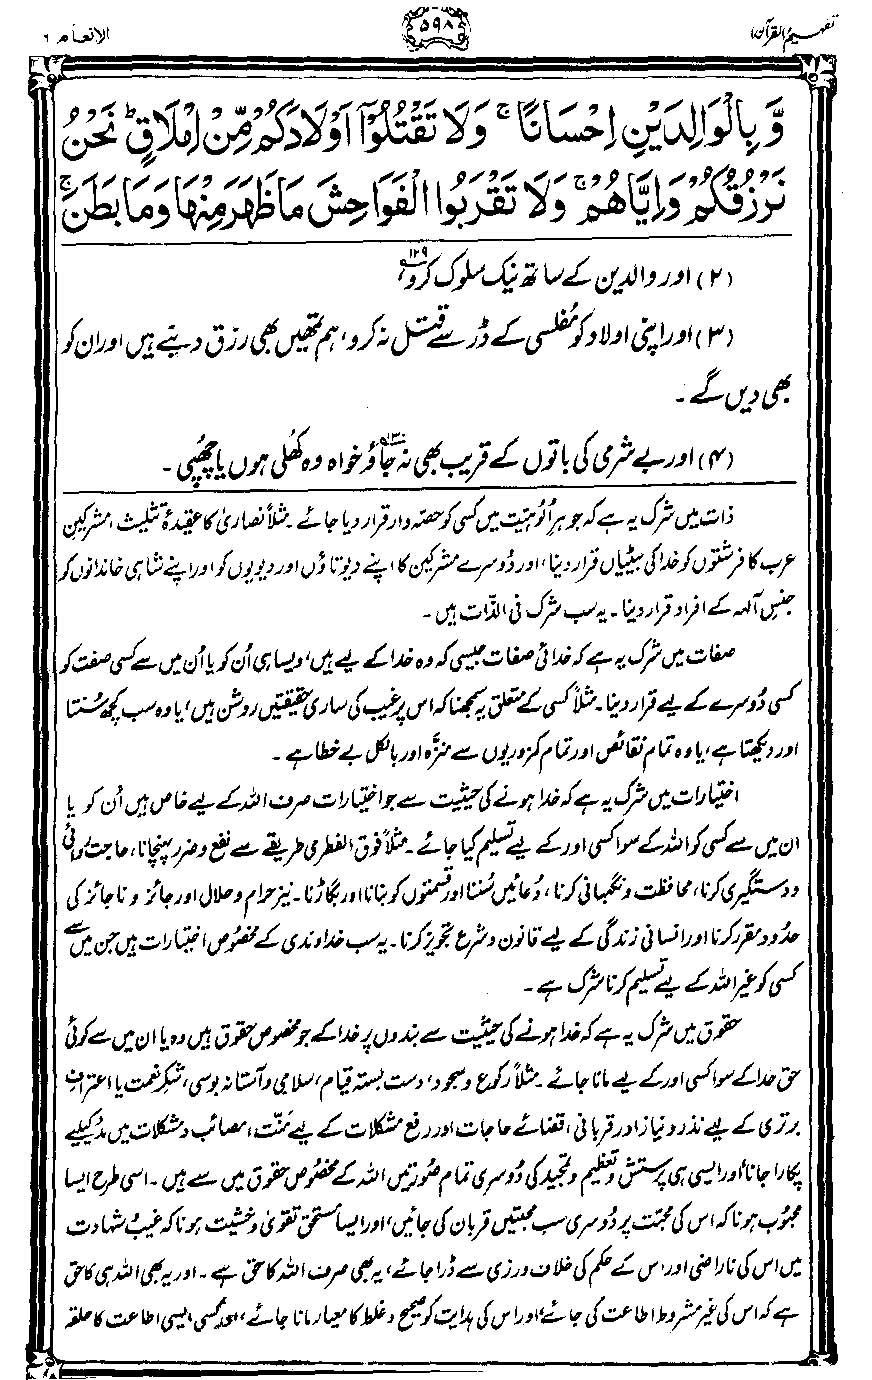 تفہیم القرآن ۱
۵۹۸
الانعام ۶
وَّبِالْوَالِدَيْنِ اِحْسَانًا ۚ وَلَا تَقْتُلُوْٓا اَوْلَادَكُمْ مِّنْ اِمْلَاقٍ ؕ نَحْنُ
نَرْزُقُكُمْ وَاِيَّاهُمْ ۚ وَلَا تَقْرَبُوا الْفَوَاحِشَ مَا ظَهَرَ مِنْهَا وَمَا بَطَنَ ۚ
(۲) اور والدین کے ساتھ نیک سلوک کرو ۱۲۹،
(۳) اور اپنی اولاد کو مُفلسی کے ڈر سے قتل نہ کرو، ہم تمھیں بھی رزق دیتے ہیں اور ان کو
بھی دیں گے۔
(۴) اور بے شرمی کی باتوں کے قریب بھی نہ جاؤ ۱۳۰ خواہ وہ کھُلی ہوں یا چھُپی۔
ذات میں شرک یہ ہے کہ جوہرِ اُلُوہیّت میں کسی کو حصہ دار قرار دیا جائے۔ مثلاً نصاریٰ کا عقیدۂ تثلیث، مشرکین
عرب کا فرشتوں کو خدا کی بیٹیاں قرار دینا، اور دُوسرے مشرکین کا اپنے دیوتاؤں اور دیویوں کو اور اپنے شاہی خاندانوں کو
جنسِ آلہہ کے افراد قرار دینا۔ یہ سب شرک فی الذّات ہیں۔
صفات میں شرک یہ ہے کہ خدائی صفات جیسی کہ وہ خدا کے لیے ہیں، ویسا ہی اُن کو یا اُن میں سے کسی صفت کو
کسی دُوسرے کے لیے قرار دینا۔ مثلاً کسی کے متعلق یہ سمجھنا کہ اس پر غیب کی ساری حقیقتیں روشن ہیں، یا وہ سب کچھ سُنتا
اور دیکھتا ہے، یا وہ تمام نقائص اور تمام کمزوریوں سے منزَّہ اور بالکل بے خطا ہے۔
اختیارات میں شرک یہ ہے کہ خدا ہونے کی حیثیت سے جو اختیارات صرف اللہ کے لیے خاص ہیں اُن کو یا
ان میں سے کسی کو اللہ کے سوا کسی اور کے لیے تسلیم کیا جائے۔ مثلاً فوق الفطری طریقے سے نفع و ضرر پہنچانا، حاجت روائی
و دستگیری کرنا، محافظت و نگہبانی کرنا، دُعائیں سُننا اور قسمتوں کو بنانا اور بگاڑنا۔ نیز حرام و حلال اور جائز و ناجائز کی
حدُود مقرر کرنا اور انسانی زندگی کے لیے قانون و شرع تجویز کرنا۔ یہ سب خداوندی کے مخصُوص اختیارات ہیں جن میں سے
کسی کو غیر اللہ کے لیے تسلیم کرنا شرک ہے۔
حقوق میں شرک یہ ہے کہ خدا ہونے کی حیثیت سے بندوں پر خدا کے جو مخصُوص حقوق ہیں وہ یا ان میں سے کوئی
حق خدا کے سوا کسی اور کے لیے مانا جائے۔ مثلاً رکوع و سجود، دست بستہ قیام، سلامی و آستانہ بوسی، شکرِ نعمت یا اعترافِ
برتری کے لیے نذر و نیاز اور قربانی، قضائے حاجات اور رفعِ مشکلات کے لیے مَنّت، مصائب و مشکلات میں مدد کیلیے
پکارا جانا، اور ایسی ہی پرستش و تعظیم و تمجید کی دُوسری تمام صُورتیں اللہ کے مخصُوص حقوق میں سے ہیں۔ اسی طرح ایسا
محبُوب ہونا کہ اس کی محبّت پر دُوسری سب محبتیں قربان کی جائیں، اور ایسا مستحقِ تقویٰ و خشیت ہونا کہ غیب و شہادت
میں اس کی ناراضی اور اس کے حکم کی خلاف ورزی سے ڈرا جائے، یہ بھی صرف اللہ کا حق ہے۔ اور یہ بھی اللہ ہی کا حق
ہے کہ اس کی غیر مشروط اطاعت کی جائے، اور اس کی ہدایت کو صحیح و غلط کا معیار مانا جائے، اور کسی ایسی اطاعت کا حلقہ